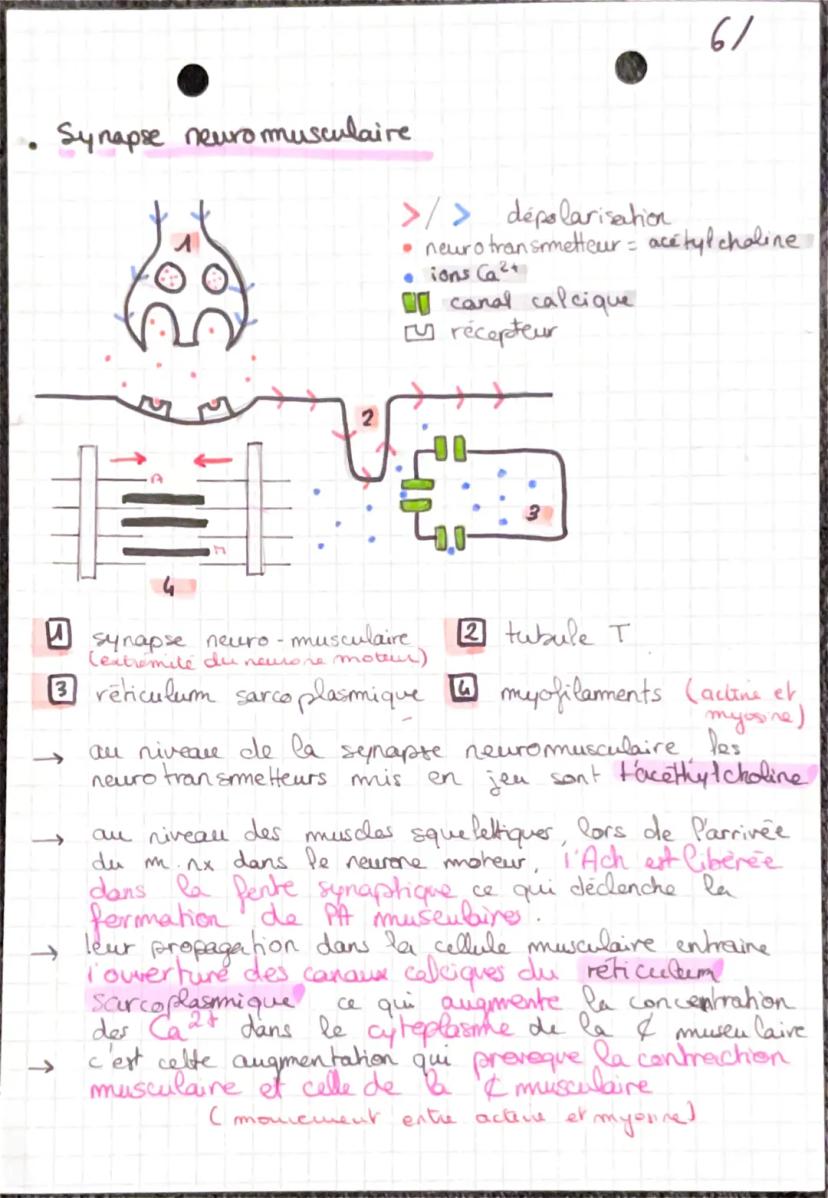 6/
. Synapse neuromusculaire
>/> dépolarisation
• neurotransmetteur = acétylcholine
• ions Ca²⁺
canal calcique
récepteur
1
2
A
M
3
4
1 synapse neuro-musculaire
(extrémité du neurone moteur)
2 tubule T
3 réticulum sarcoplasmique
4 myofilaments (actine et
myosine)
→ au niveau de la synapse neuromusculaire, les
neurotransmetteurs mis en jeu sont l'acéthylcholine
→ au niveau des muscles squelettiques, lors de l'arrivée
du m. nx dans le neurone moteur, l'Ach est libérée
dans la fente synaptique ce qui déclenche la
formation de PA musculaires.
→ leur propagation dans la cellule musculaire entraine
l'ouverture des canaux calciques du réticulum
sarcoplasmique ce qui augmente la concentration
des Ca²⁺ dans le cytoplasme de la ¢ musculaire
→ c'est cette augmentation qui provoque la contraction
musculaire et celle de la ¢ musculaire
(mouvement entre actine et myosine)